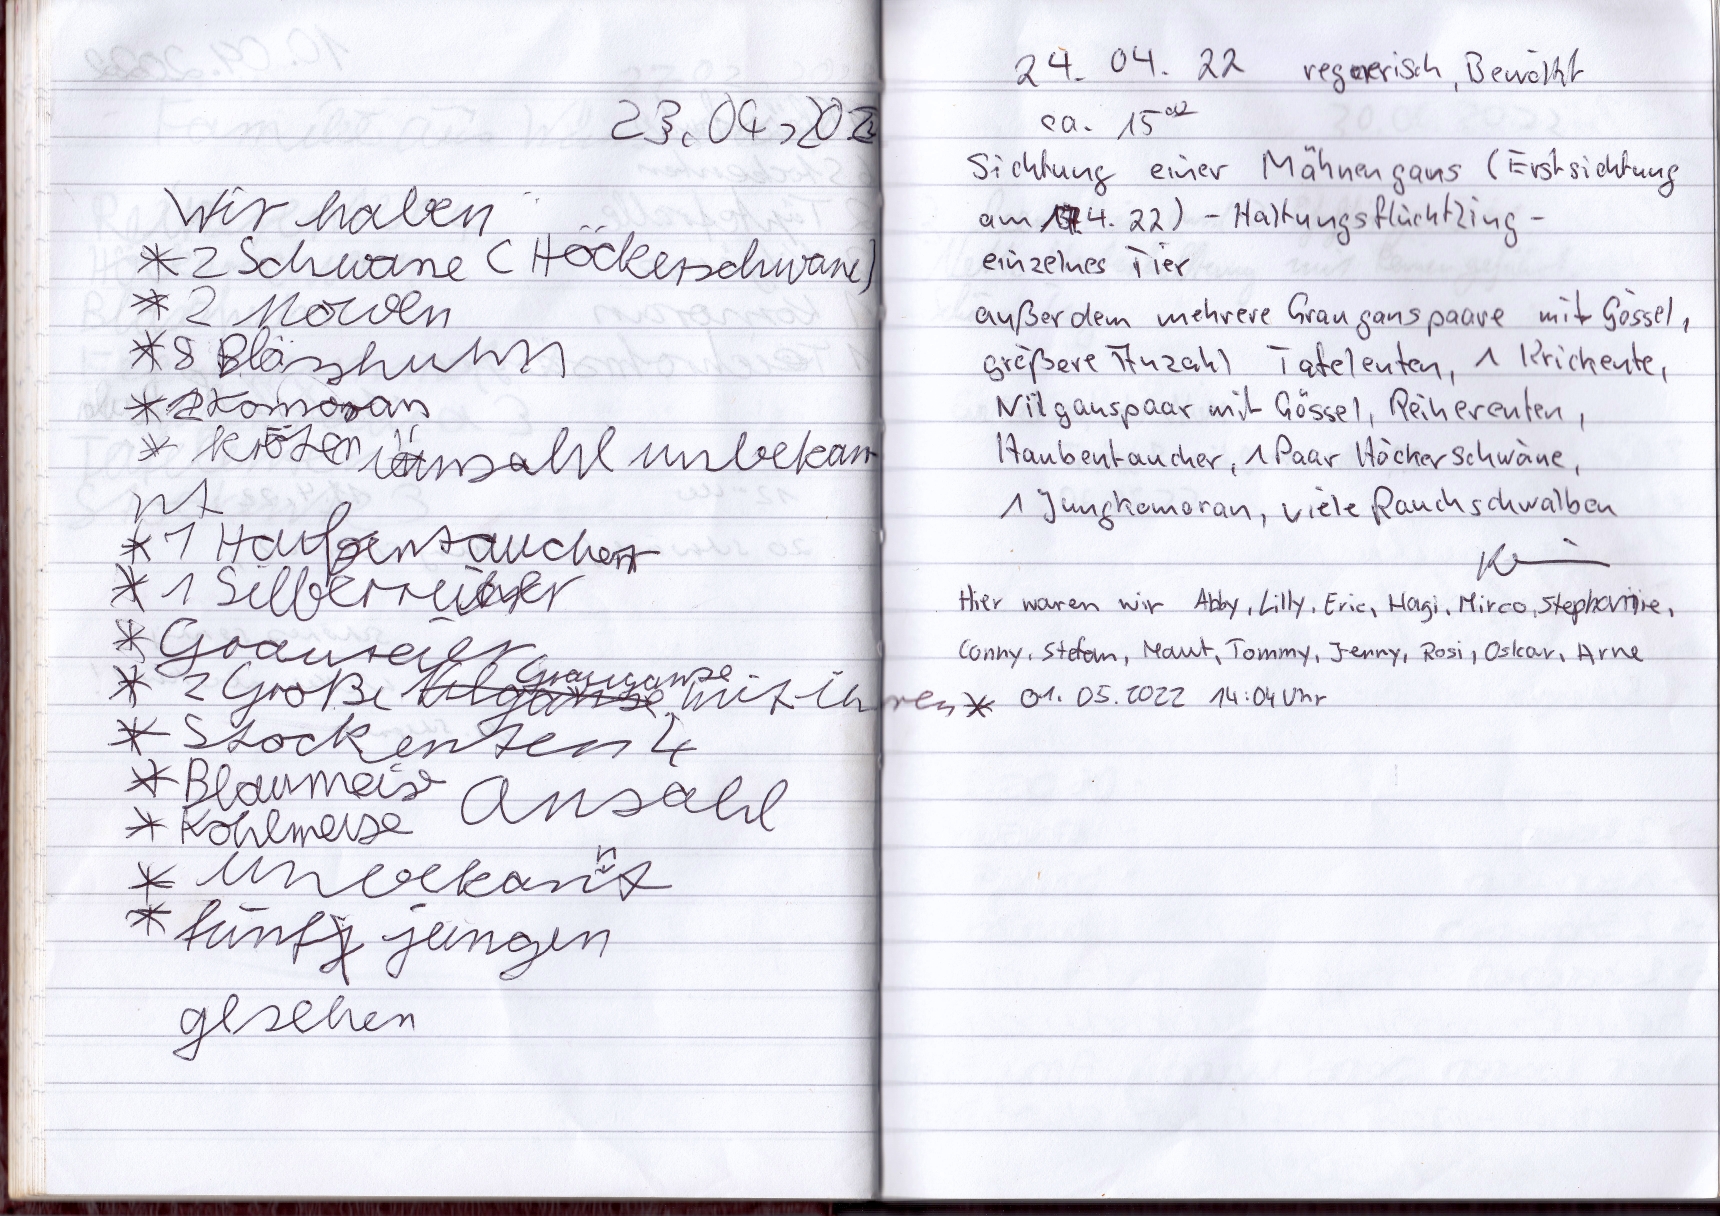 23.04.202
Wir haben
* 2 Schwane (Höckerschwane)
* 2 Möwen
* 8 Blässhuhn
* 2 Komoran
* Kröten anzahl unbekan
nt
* 1 Haubentaucher
* 1 Silberreiher
* Graureier
* 2 Große Graugänse mit ihren *
* Stockenten 4
* Blaumeise Anzahl
* Kohlmeise
* unbekannt
* fünf jungen
gesehen
24. 04. 22 regnerisch, Bewölkt
ca. 15⁰⁰
Sichtung einer Mähnengans (Erstsichtung
am 17.4.22) - Haltungsflüchtling -
einzelnes Tier
außerdem mehrere Grauganspaare mit Gössel,
größere Anzahl Tafelenten, 1 Krickente,
Nilganspaar mit Gössel, Reiherenten,
Haubentaucher, 1 Paar Höckerschwäne,
1 Jungkomoran, viele Rauchschwalben
Hier waren wir Abby, Lilly, Eric, Hagi, Mirco, Stephanie,
Conny, Stefan, Maut, Tommy, Jenny, Rosi, Oskar, Arne
01. 05. 2022 14:04 Uhr